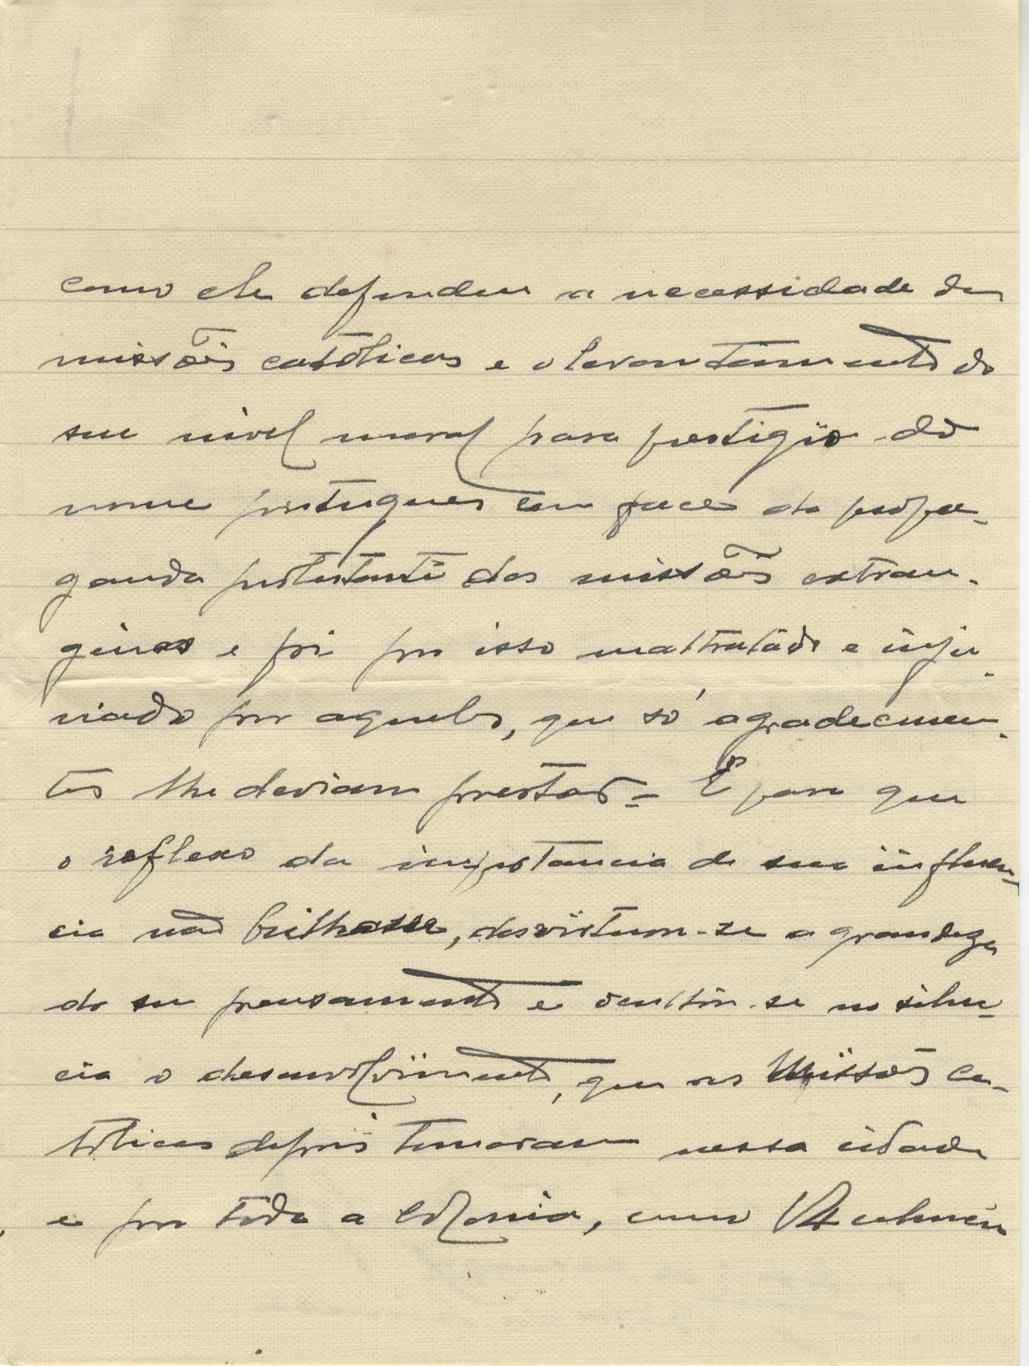 como ele defendeu a necessidade das
missões católicas e o levantamento do
seu nivel moral para prestigio do
nome portugues em face da propa-
ganda protestante das missões extran-
geiras e foi por isso maltratado e inju-
riado por aqueles, que só agradecimen-
tos lhe deviam prestar - E para que
o reflexo da importancia da sua influen-
cia não brilhasse, desvirtuou-se a grandeza
do seu pensamento e ocultou-se no silen-
cio o desenvolvimento, que as Missões ca-
tolicas depois tomaram nessa cidade
e por toda a Colonia, como